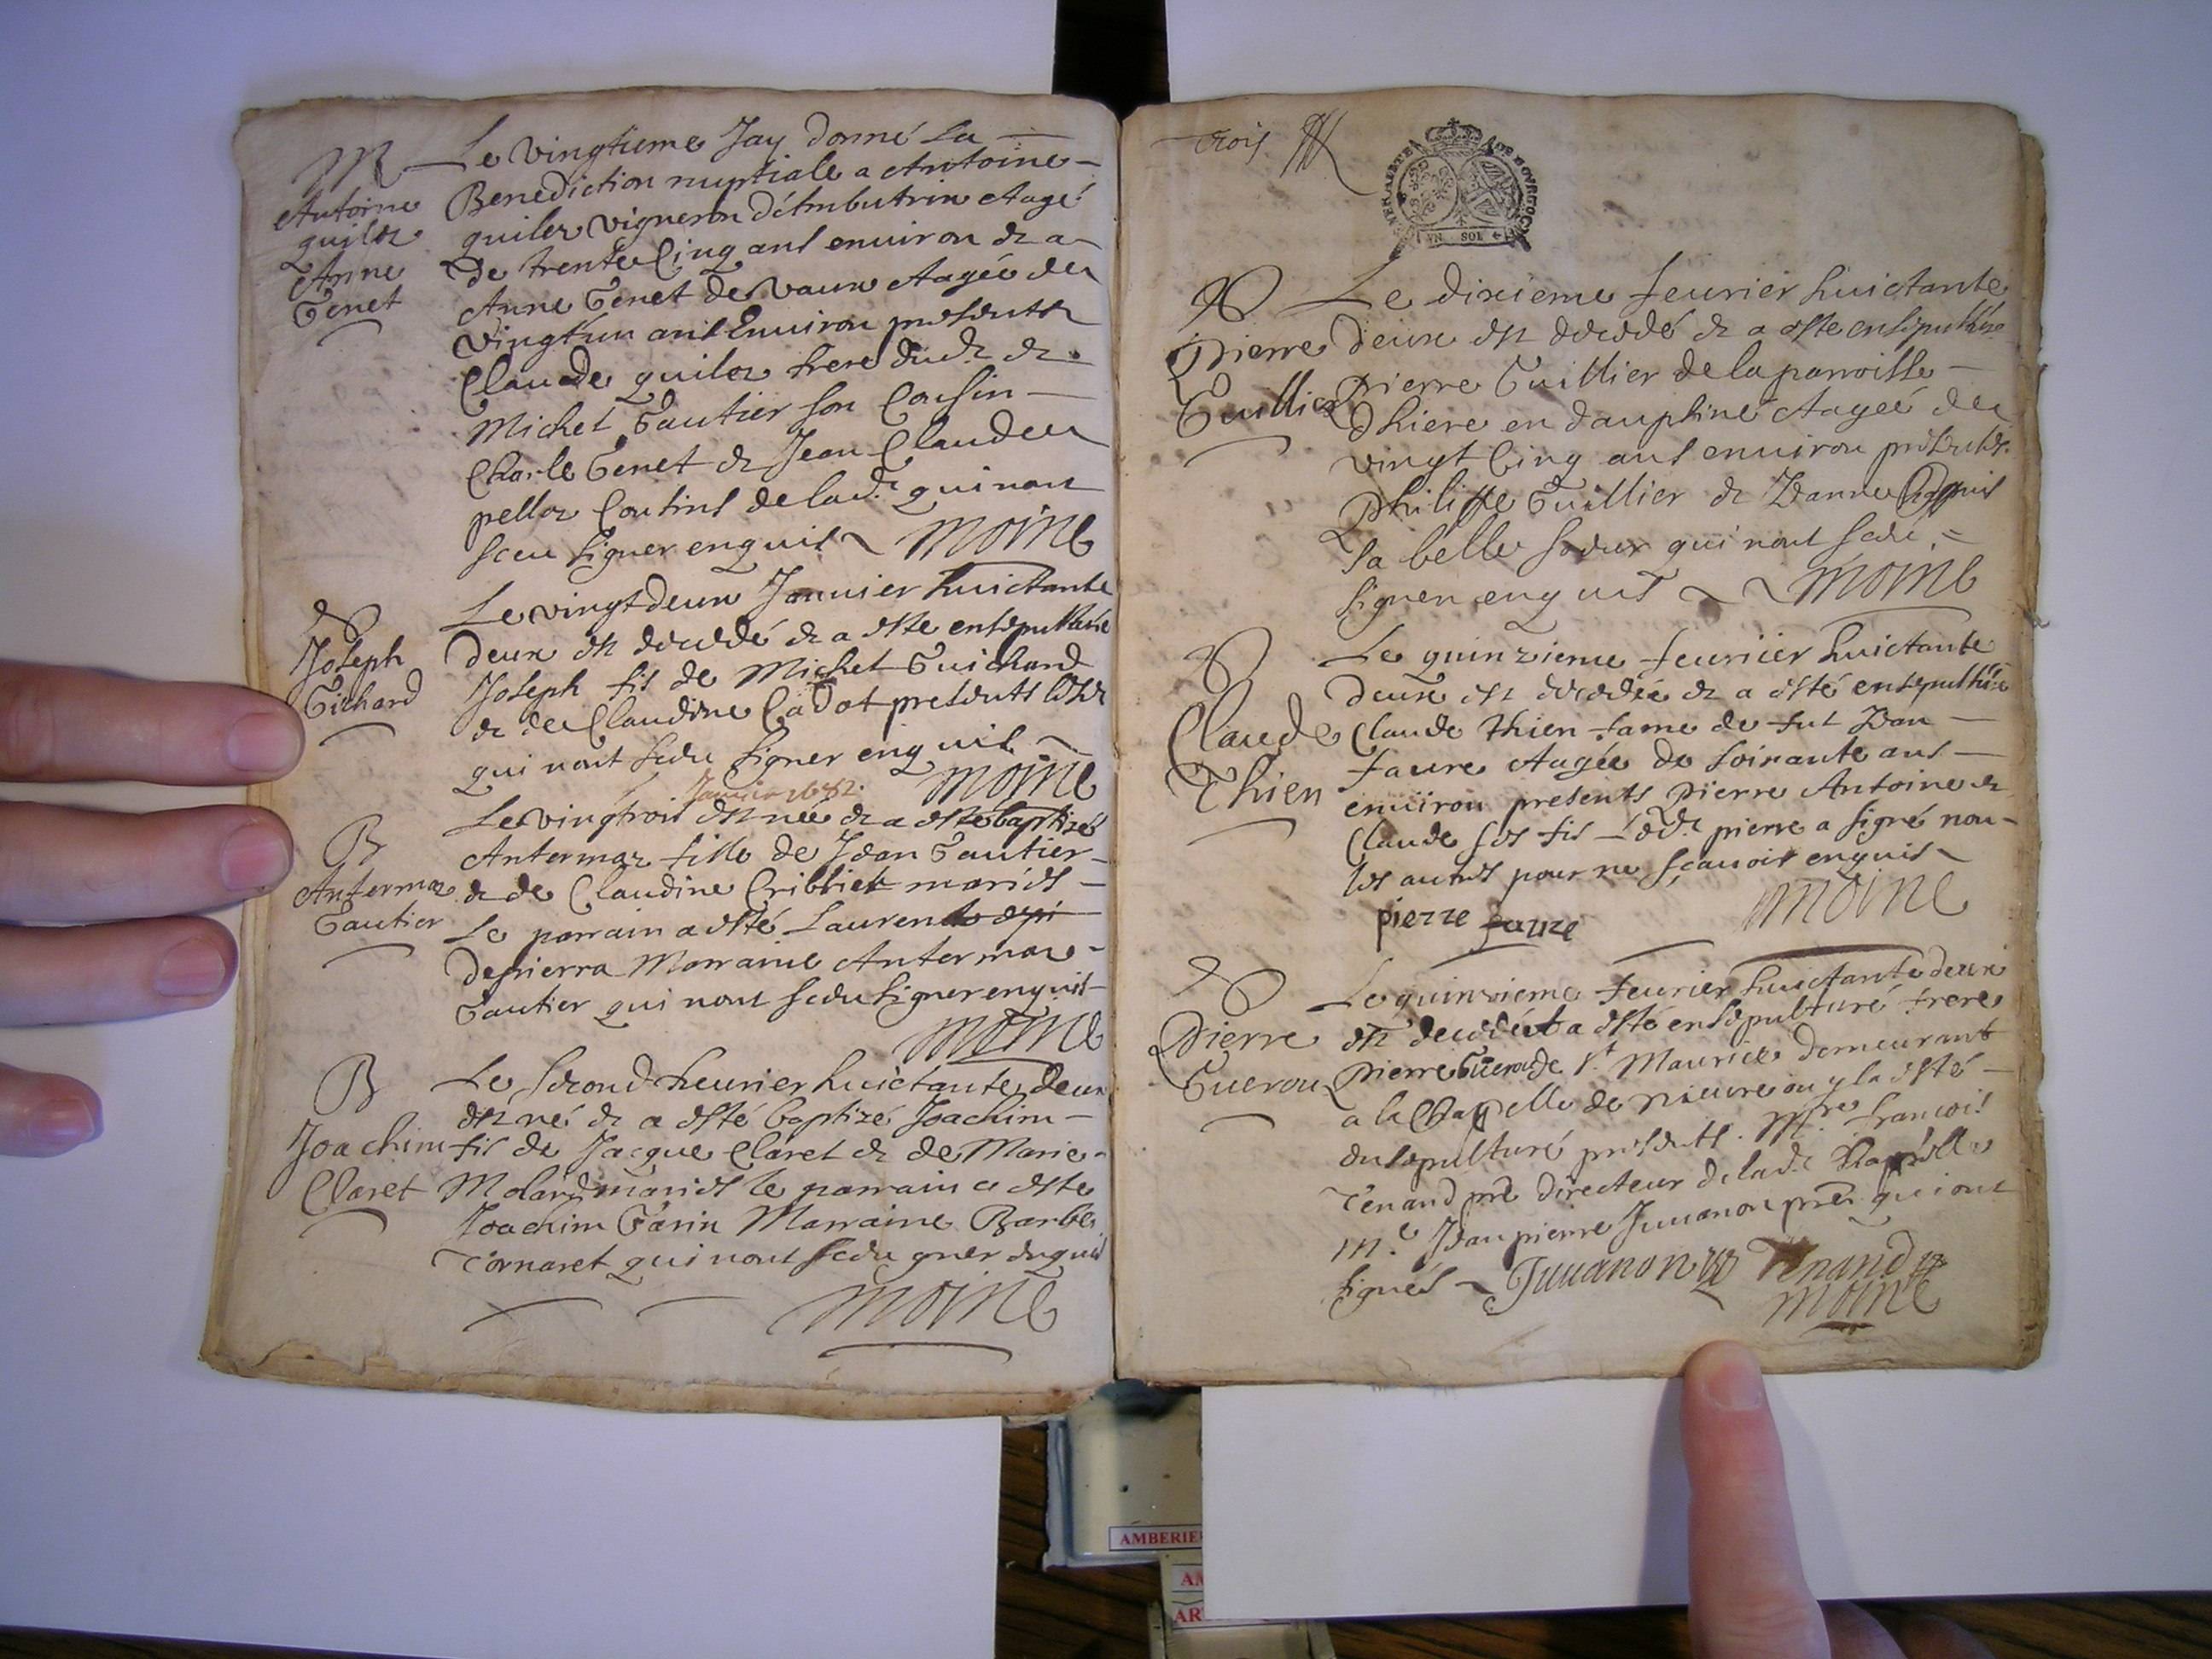 M
Antoine
quiloz
Anne
Tenet
Le vingtieme Jay donné La
Benediction nuptiale a Antoine
quiloz vigneron d'étmbutrin Aagé
de trente Cinq ans enuiron & a
Anne Tenet de vaux Aagée de
vingt un ans Enuiron presents
Claude quiloz frere dud. &
Michel Gautier son Cousin
Charle Tenet & Jean Claude
pelloz Cousins de lad. qui nont
sceu signer enquis Moine
Joseph
Gichard
Le vingt deux Januier huictante
deux est decedé & a esté ensepulturé
Joseph fis de Michel Guichard
& de Claudine Cadot presents
qui nont sceu signer enquis
Moine
Januier 1682.
B
Antermoz
Gautier
Le vingtrois est née & a esté baptizé
Antermoz fille de Jean Gautier
& de Claudine Cribliet mariés
Le parrain a esté Laurent
depierra Marraine Antermoz
Gautier qui nont sceu signer enquis
Moine
B
Joachim
Claret
Le second feurier huictante deux
est né & a esté baptizé Joachim
fis de Jacque Claret & de Marie
Molard mariés le parrain a esté
Joachim Garin Marraine Barbe
Cornaret qui nont sceu gner enquis
Moine
trois
GENERALITE DE BOVRGOG
VN SOL
Pierre
Guillier
Le dixieme feurier huictante
deux est decedé & a esté ensepulturé
Pierre Guillier de la parroisse
dhiere en dauphiné Aageé de
vingt Cinq ans enuiron presents
Philippe Guillier & Jeanne
sa belle soeur qui nont sceu
signer enquis Moine
Claude
Thien
Le quinzieme feurier huictante
deux est decedée & a esté ensepulturée
Claude Thien fame de fut Jean
faure Aagée de soixante ans
enuiron presents Pierre Antoine &
Claude ses fis led. pierre a signé non
les autres pour ne sçauoir enquis
pierre faure Moine
Pierre
Guerou
Le quinzieme feurier huictante deux
est decedé & a esté ensepulturé frere
Pierre Guerou de St Maurice demeurant
a la Chapelle de nieure ou y la esté
ensepulturé presents Mre francois
Tenand pre directeur de lad. Chappelle
Me Jean pierre Juuanon pre qui ont
signés Juuanon Tenand
Moine
AMBERIE
AM
AR